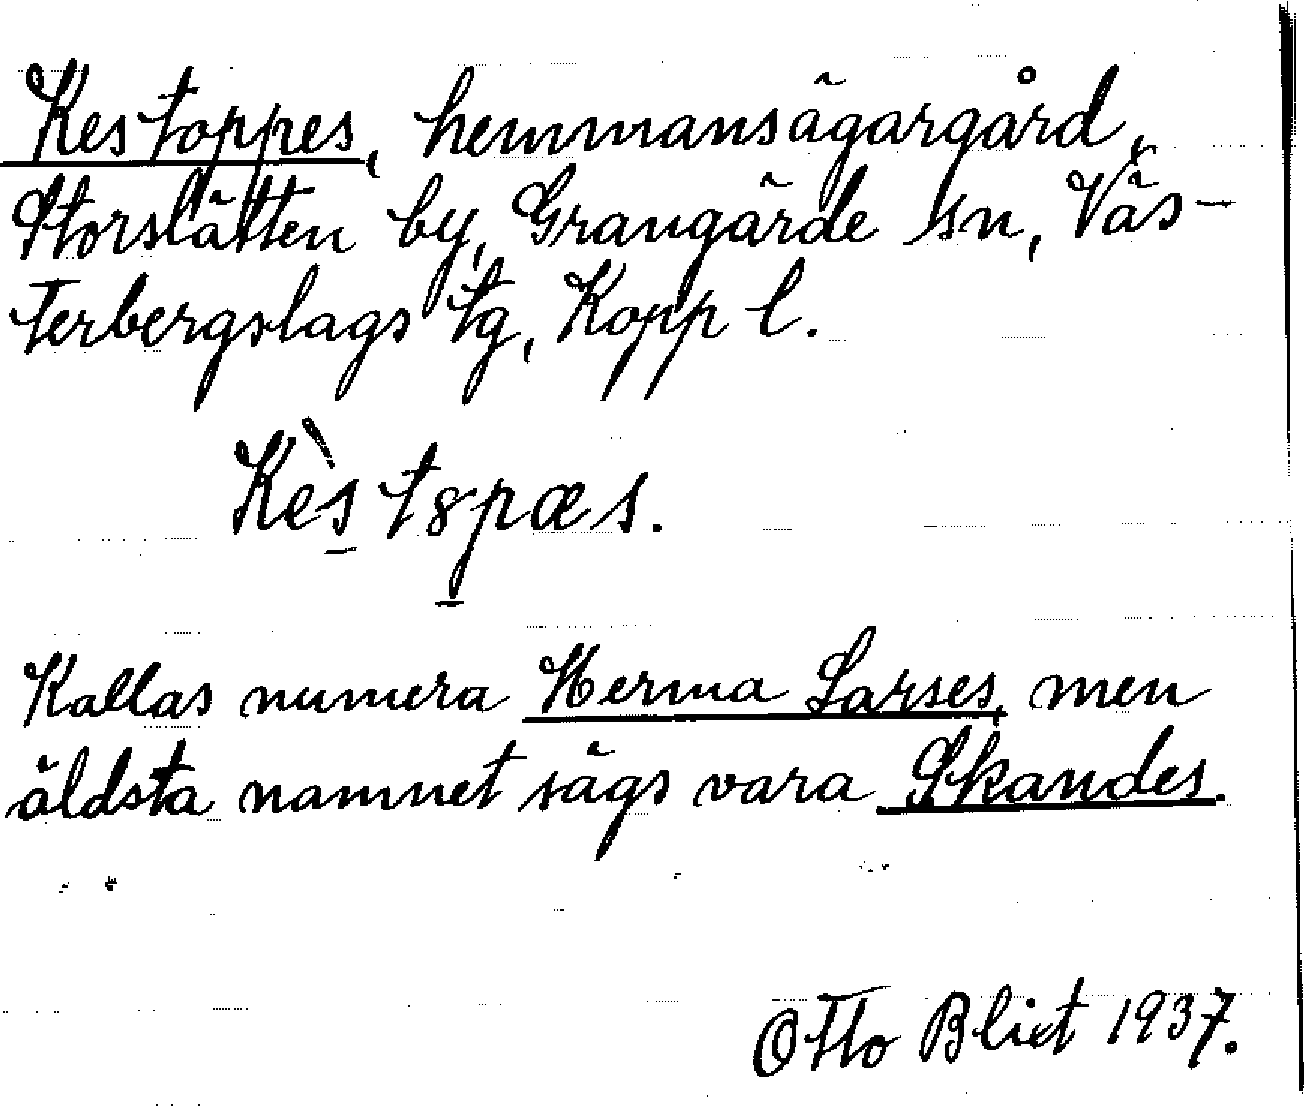 Kestoppes, hemmansägargård,
Storslätten by, Grangärde sn, Väs-
terbergslags tg, Kopp l.
Kès̱t8p̱æs.
Kallas numera Herma Larses, men
äldsta namnet sägs vara Skandes.
Otto Blixt 1937.